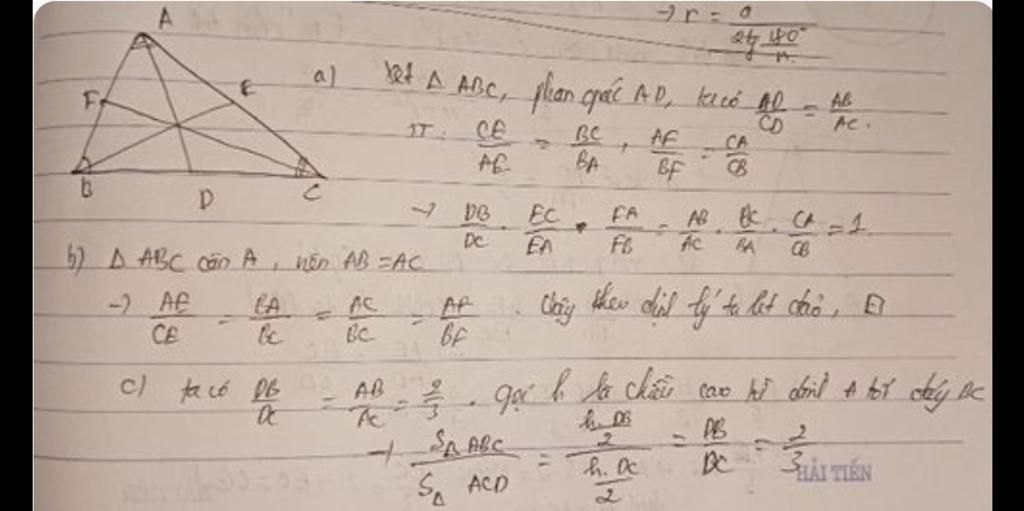 → r = a / (2tg 180°/n)
A
F
E
B
D
C
a) xét Δ ABC, phân giác AD, ta có BD/CD = AB/AC.
TT: CE/AE = BC/BA, AF/BF = CA/CB
→ DB/DC . EC/EA . FA/FB = AB/AC . BC/BA . CA/CB = 1.
b) Δ ABC cân A, nên AB = AC
→ AE/CE = BA/BC = AC/BC = AF/BF. Vậy theo định lý ta lét đảo,
c) ta có DB/DC = AB/AC = 2/3. gọi h là chiều cao từ đỉnh A tới đáy BC
→ SΔ ABC / SΔ ACD = (h.DB/2) / (h.DC/2) = DB/DC = 2/3
HẢI TIẾN